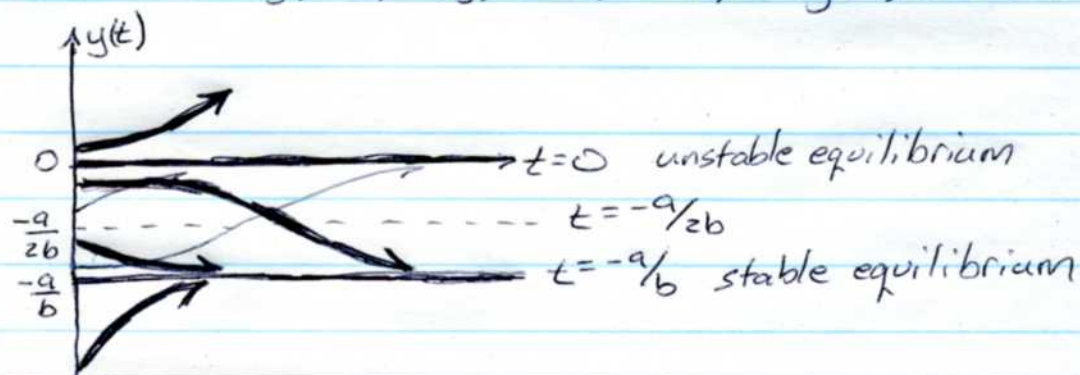 y(t)
0
t=0 unstable equilibrium
-a/2b
t=-a/2b
-a/b
t=-a/b stable equilibrium